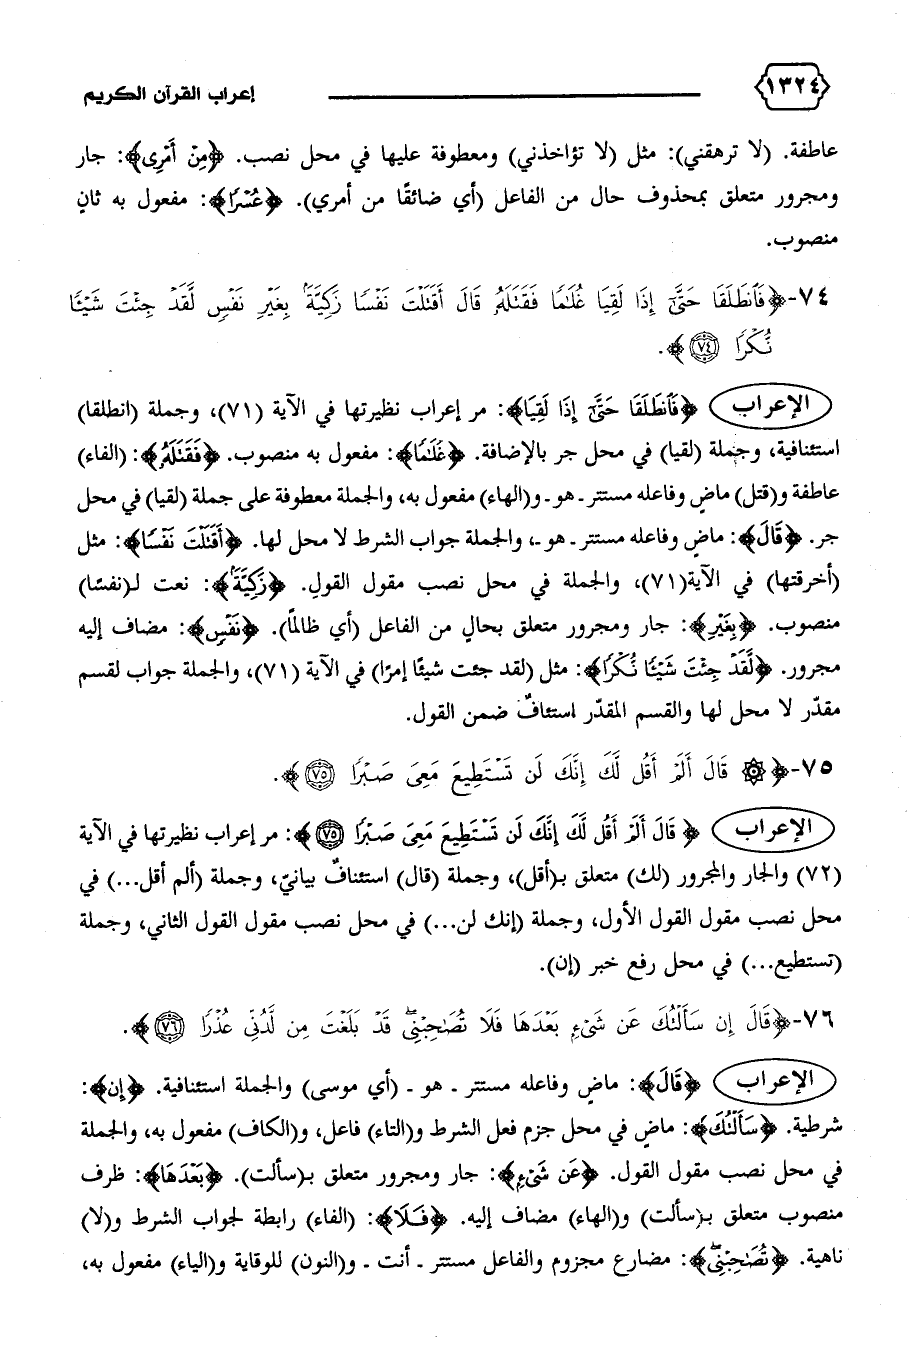 ١٣٢٤ إعراب القرآن الكريم
عاطفة. (لا ترهقني): مثل (لا تؤاخذني) ومعطوفة عليها في محل نصب. ﴿مِنْ أَمْرِى﴾: جار
ومجرور متعلق بمحذوف حال من الفاعل (أي ضائقًا من أمري). ﴿عُسْرًا﴾: مفعول به ثانٍ
منصوب.
٧٤-﴿فَٱنطَلَقَا حَتَّىٰٓ إِذَا لَقِيَا غُلَٰمًا فَقَتَلَهُۥ قَالَ أَقَتَلْتَ نَفْسًا زَكِيَّةًۢ بِغَيْرِ نَفْسٍ لَّقَدْ جِئْتَ شَيْـًٔا
نُّكْرًا ٧٤﴾.
الإعراب ﴿فَٱنطَلَقَا حَتَّىٰٓ إِذَا لَقِيَا﴾: مر إعراب نظيرتها في الآية (٧١)، وجملة (انطلقا)
استئنافية، وجملة (لقيا) في محل جر بالإضافة. ﴿غُلَٰمًا﴾: مفعول به منصوب. ﴿فَقَتَلَهُۥ﴾: (الفاء)
عاطفة و(قتل) ماضٍ وفاعله مستتر ـ هو ـ و(الهاء) مفعول به، والجملة معطوفة على جملة (لقيا) في محل
جر. ﴿قَالَ﴾: ماضٍ وفاعله مستتر ـ هو ـ، والجملة جواب الشرط لا محل لها. ﴿أَقَتَلْتَ نَفْسًا﴾: مثل
(أخرقتها) في الآية(٧١)، والجملة في محل نصب مقول القولِ. ﴿زَكِيَّةًۢ﴾: نعت لـ(نفسًا)
منصوب. ﴿بِغَيْرِ﴾: جار ومجرور متعلق بحالٍ من الفاعل (أي ظالماً). ﴿نَفْسٍ﴾: مضاف إليه
مجرور. ﴿لَّقَدْ جِئْتَ شَيْـًٔا نُّكْرًا﴾: مثل (لقد جئت شيئًا إمرًا) في الآية (٧١)، والجملة جواب لقسم
مقدّر لا محل لها والقسم المقدّر استئنافٌ ضمن القول.
٧٥-﴿۞ قَالَ أَلَمْ أَقُل لَّكَ إِنَّكَ لَن تَسْتَطِيعَ مَعِىَ صَبْرًا ٧٥﴾.
الإعراب ﴿قَالَ أَلَمْ أَقُل لَّكَ إِنَّكَ لَن تَسْتَطِيعَ مَعِىَ صَبْرًا ٧٥﴾: مر إعراب نظيرتها في الآية
(٧٢) والجار والمجرور (لك) متعلق بـ(أقل)، وجملة (قال) استئنافٌ بيانيّ، وجملة (ألم أقل...) في
محل نصب مقول القول الأول، وجملة (إنك لن...) في محل نصب مقول القول الثاني، وجملة
(تستطيع...) في محل رفع خبر (إن).
٧٦-﴿قَالَ إِن سَأَلْتُكَ عَن شَىْءٍۭ بَعْدَهَا فَلَا تُصَٰحِبْنِى ۖ قَدْ بَلَغْتَ مِن لَّدُنِّى عُذْرًا ٧٦﴾.
الإعراب ﴿قَالَ﴾: ماضٍ وفاعله مستتر ـ هو ـ (أي موسى) والجملة استئنافية. ﴿إِن﴾:
شرطية. ﴿سَأَلْتُكَ﴾: ماضٍ في محل جزم فعل الشرط و(التاء) فاعل، و(الكاف) مفعول به، والجملة
في محل نصب مقول القول. ﴿عَن شَىْءٍۭ﴾: جار ومجرور متعلق بـ(سألت). ﴿بَعْدَهَا﴾: ظرف
منصوب متعلق بـ(سألت) و(الهاء) مضاف إليه. ﴿فَلَا﴾: (الفاء) رابطة لجواب الشرط و(لا)
ناهية. ﴿تُصَٰحِبْنِى ۖ﴾: مضارع مجزوم والفاعل مستتر ـ أنت ـ و(النون) للوقاية و(الياء) مفعول به،